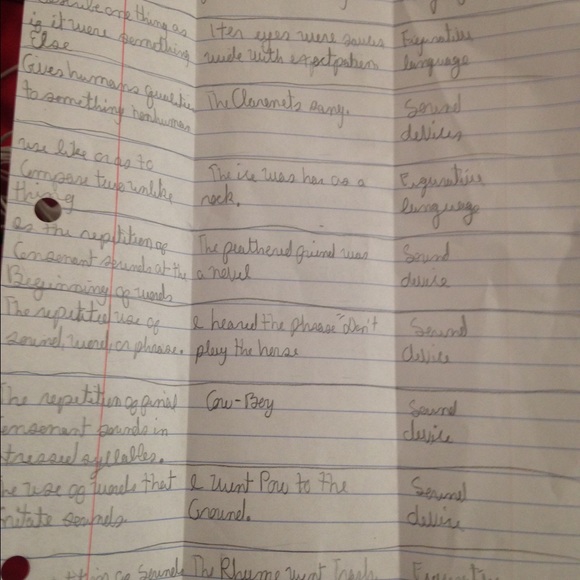 Describe one thing as
if it were something
Else
Her eyes were saucers
wide with expectation
Figurative
language
Gives humans qualities
to something nonhuman
The Clarenets sang.
Sound
devices
use like or as to
Compare two unlike
thing
The ice was har as a
rock.
Figurative
language
is the repetition of
Consonant sounds at the
Beginning of words
The feathered friend was
a
Sound
device
The repetitive use of
sound, word, or phrase.
I heard the phrase "Don't
play the horse
Sound
device
The repetition of final
consonant sounds in
stressed syllables.
Cow-Boy
Sound
device
The use of words that
imitate sounds
I went Pow to the
Ground.
Sound
device
of Sounds
The Rhyme went